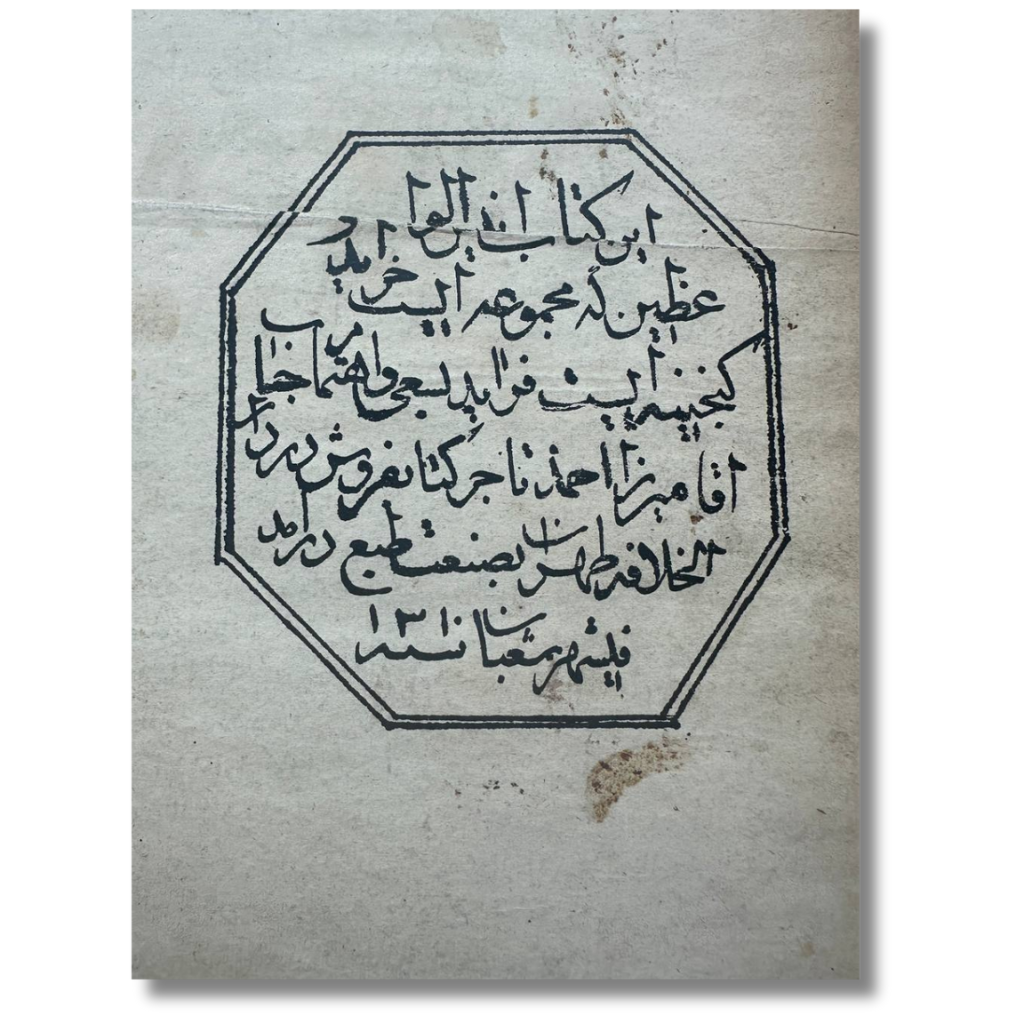 این کتاب انیس الواعظین که مجموعه ایست خراید و
کنجینه ایست فراید بسعی واهتمام جناب
اقا میرزا احمد تاجر کتابفروش در دار
الخلافه طهران بصنعت طبع درامد
فیشهر شعبان سنه ۱۳۱